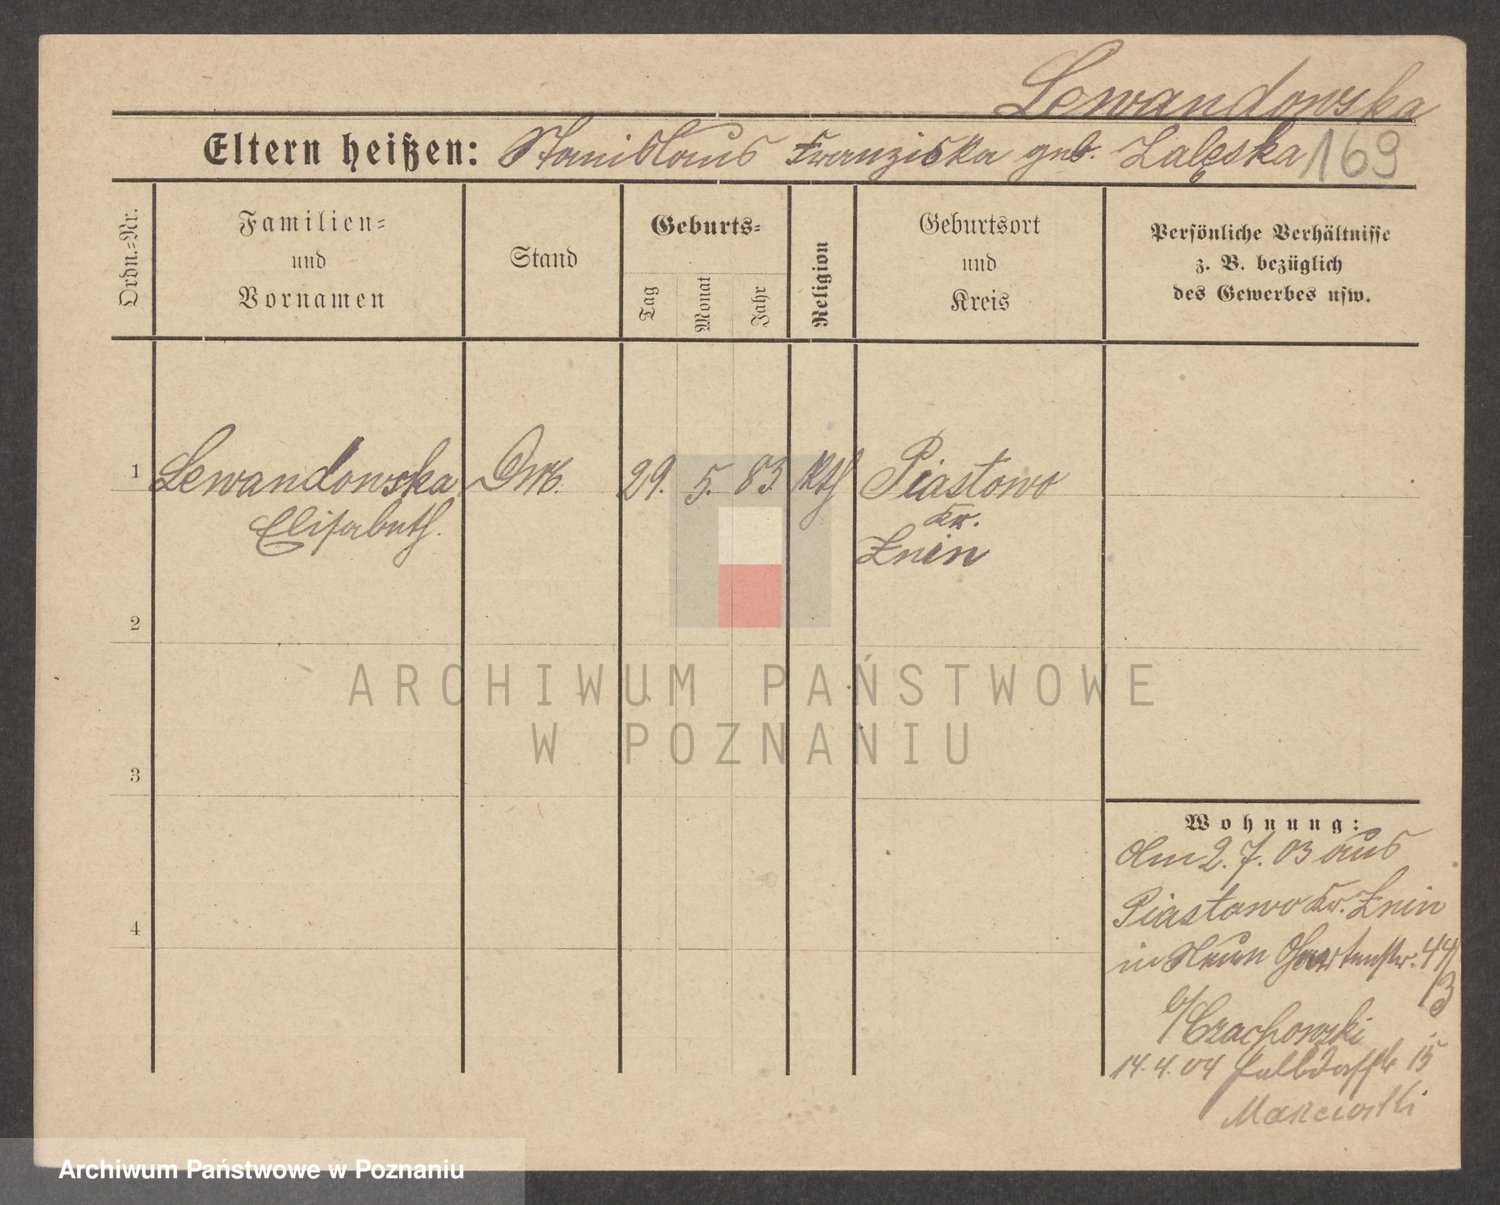 Lewandowska
Eltern heißen: Stanislaus Franziska geb. Zaleska 169
Ordn.-Nr.
Familien-
und
Vornamen
Stand
Geburts-
Tag
Monat
Jahr
Religion
Geburtsort
und
Kreis
Persönliche Verhältnisse
z. B. bezüglich
des Gewerbes usw.
1 Lewandowska 29. 5. 83 kth Piastowo
Elisabeth. Kr.
Znin
2
3
4
Wohnung:
Am 2.7.03 aus
Piastowo Kr. Znin
in Gartenstr. 44/
3
b/Czachowski
14.4.04 15
ARCHIWUM PAŃSTWOWE
W POZNANIU
Archiwum Państwowe w Poznaniu